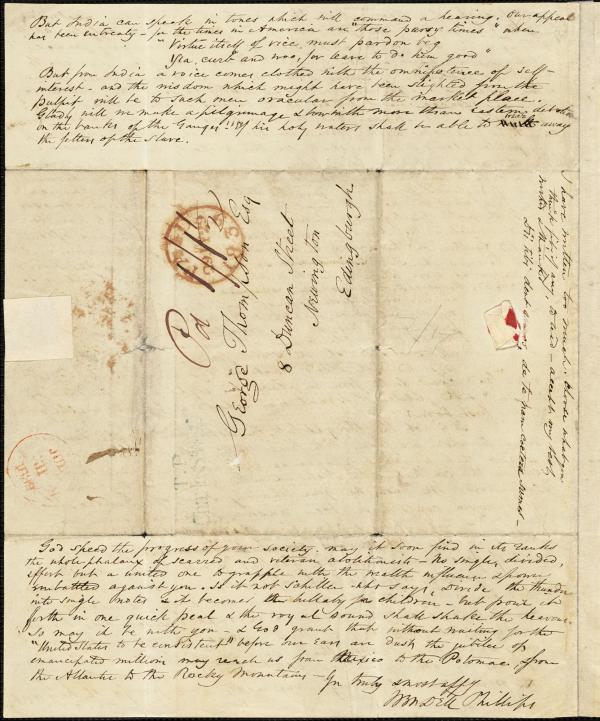 But India can speak in tones which will command a hearing. Our appeal
has been entreaty - for the times in America are "those pursy times" when
"Virtue itself of vice must pardon beg
Yea, curb and woo, for leave to do him good"
But from India a voice comes clothed with the omnipotence of self-
interest - and the wisdom which might have been slighted from the
pulpit will be to such men oracular from the market place.
Gladly will we make a pilgrimage & bow with more than Eastern devotion
on the banks of the Ganges if his holy waters shall be able to wear away
the fetters of the slave.
I have written too much. Choose what you
think fit, if any, to read - accept my best
wishes & thanks
Pd 1/1
George Thompson Esq
8 Duncan Street
Newington
Edingburgh
God speed the progress of your society. may it soon find in its ranks
the whole phalanx of scarred and veteran abolitionists - No single, divided,
effort but a united one to grapple with the wealth influence & power
embattled against you. Is it not Schiller who says, "Divide the thunder
into single notes & it becomes a lullaby for children - but pour it
forth in one quick peal & the royal sound shall shake the heavens."
So may it be with you - & God grant that without waiting for the
"United States to be consistent" before our Ears are dust the jubilee of
emancipated millions may reach us from Mexico to the Potomac, & from
the Atlantic to the Rocky Mountains -
Yrs truly & most affy
Wendell Phillips